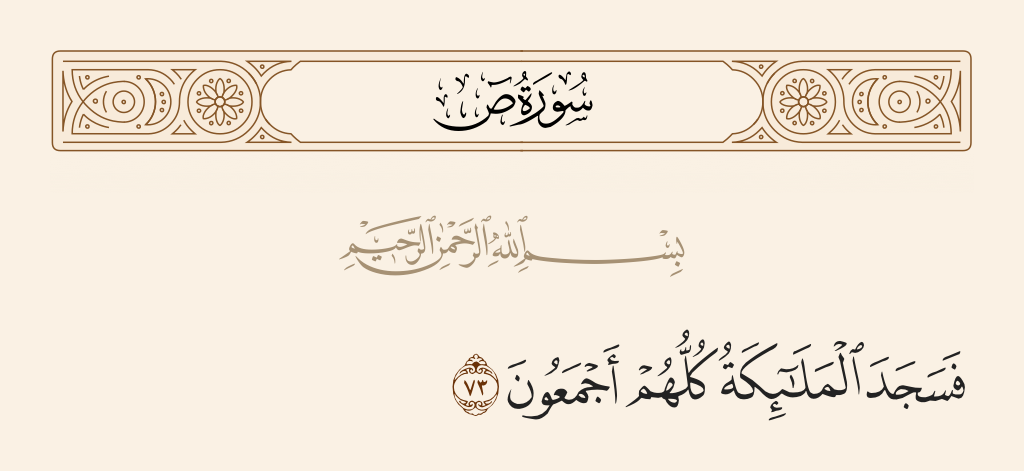 سُورَةُ صٓ
بِسْمِ ٱللَّهِ ٱلرَّحْمَٰنِ ٱلرَّحِيمِ
فَسَجَدَ ٱلْمَلَـٰٓئِكَةُ كُلُّهُمْ أَجْمَعُونَ ٧٣